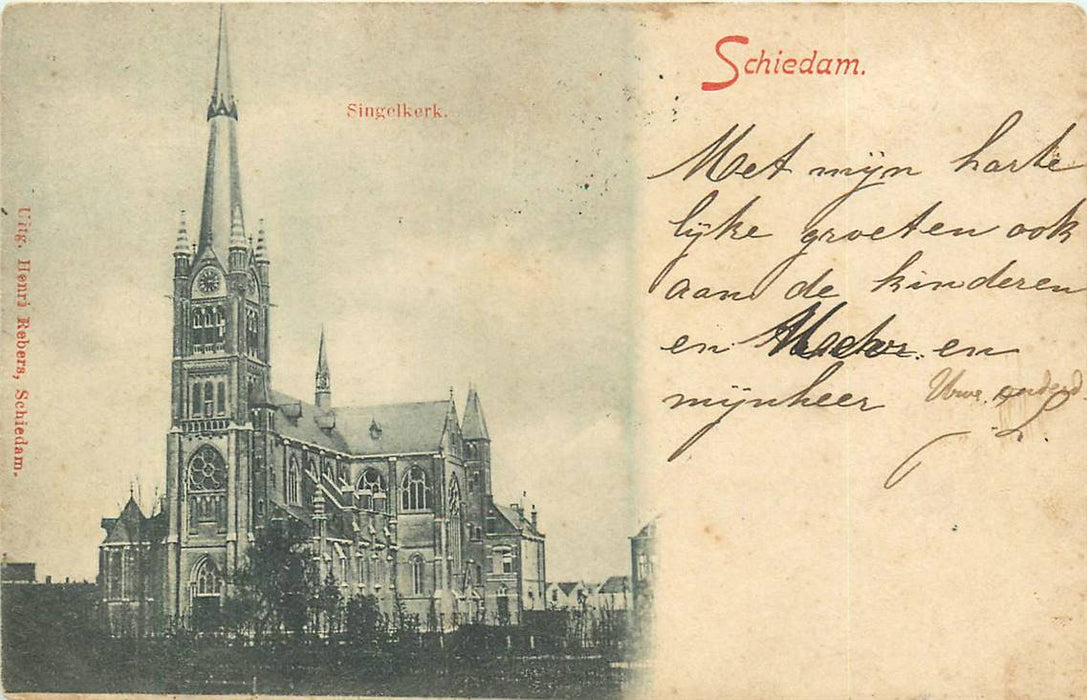 Schiedam.
Singelkerk.
Uitg. Henri Rebers, Schiedam.
Met mijn harte
lijke groeten ook
aan de kinderen
en en
mijnheer